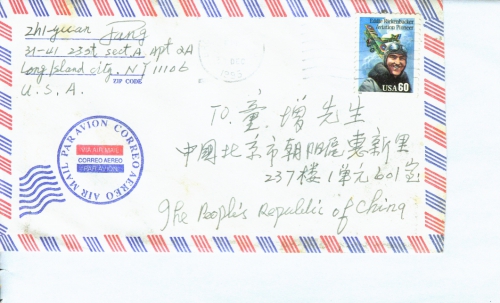 Zhi-yuan Jang
31-41 23st sect A. Apt 2A
Long Island city, NY 11106
ZIP CODE
U.S.A.
Eddie Rickenbacker
Aviation Pioneer
USA 60
TO. 童增先生
中國北京市朝阳區惠新里
237楼1單元601室
The People's Republic of China
PAR AVION CORREO AEREO AIR MAIL
VIA AIR MAIL
CORREO AEREO
PAR AVION